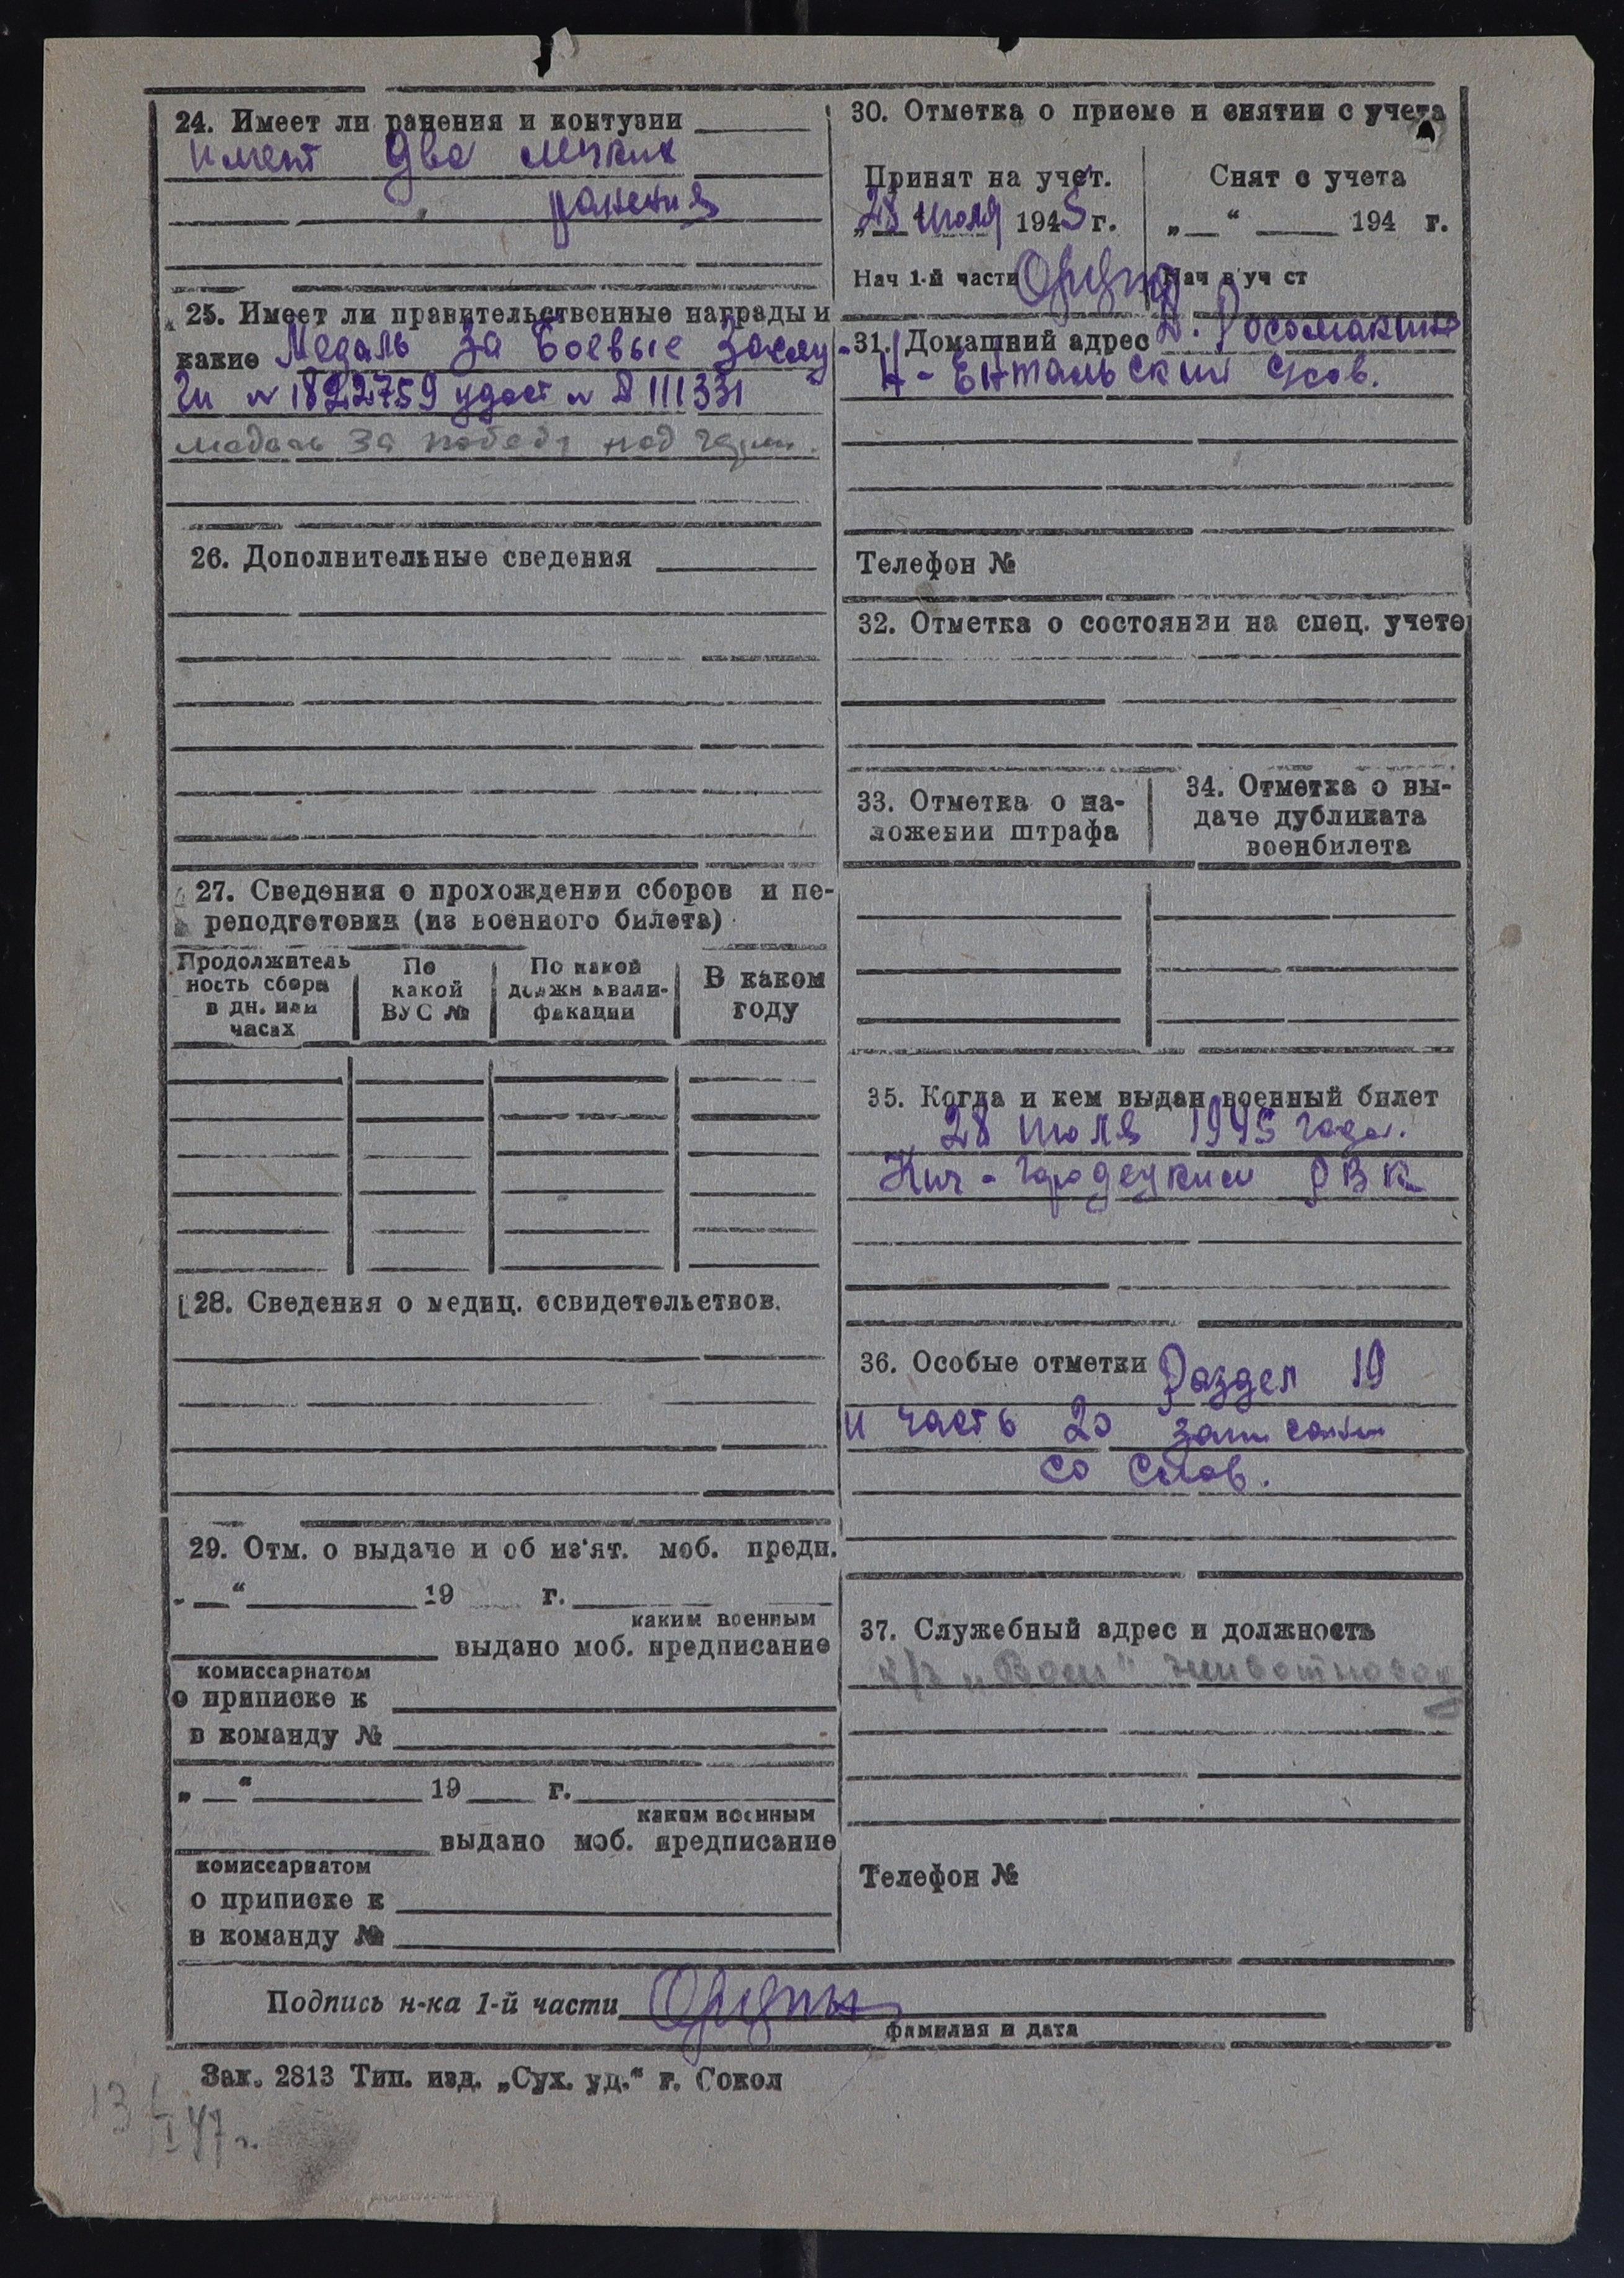 24. Имеет ли ранения и контузии
имеет два легких
ранения
25. Имеет ли правительственные награды и
какие Медаль За Боевые Заслу-
ги № 1822759 удост № Д 111331
медаль За победу над герм.
26. Дополнительные сведения
27. Сведения о прохождении сборов и пе-
реподготовки (из военного билета)
Продолжитель
ность сбора
в дн. или
часах
По
какой
ВУС №
По какой
должн квали-
фикации
В каком
году
28. Сведения о медиц. освидетельствов.
29. Отм. о выдаче и об из'ят. моб. предп.
„ “ 19 г.
каким военным
выдано моб. предписание
комиссариатом
о приписке к
в команду №
„ “ 19 г.
каким военным
выдано моб. предписание
комиссариатом
о приписке к
в команду №
30. Отметка о приеме и снятии с учета
Принят на учет.
„28 июля 1945 г.
Нач 1-й части
Снят с учета
„ “ 194 г.
Нач в уч ст
31. Домашний адрес Д. Росомакино
Н-Ентальский с/сов.
Телефон №
32. Отметка о состоянии на спец. учете
33. Отметка о на-
ложении штрафа
34. Отметка о вы-
даче дубликата
военбилета
35. Когда и кем выдан военный билет
28 июля 1945 года.
Кич-Городецким РВК
36. Особые отметки Раздел 19
и часть 20 записаны
со слов.
37. Служебный адрес и должность
к/з животновод
Телефон №
Подпись н-ка 1-й части
фамилия и дата
Зак. 2813 Тип. изд. „Сух. уд.“ г. Сокол